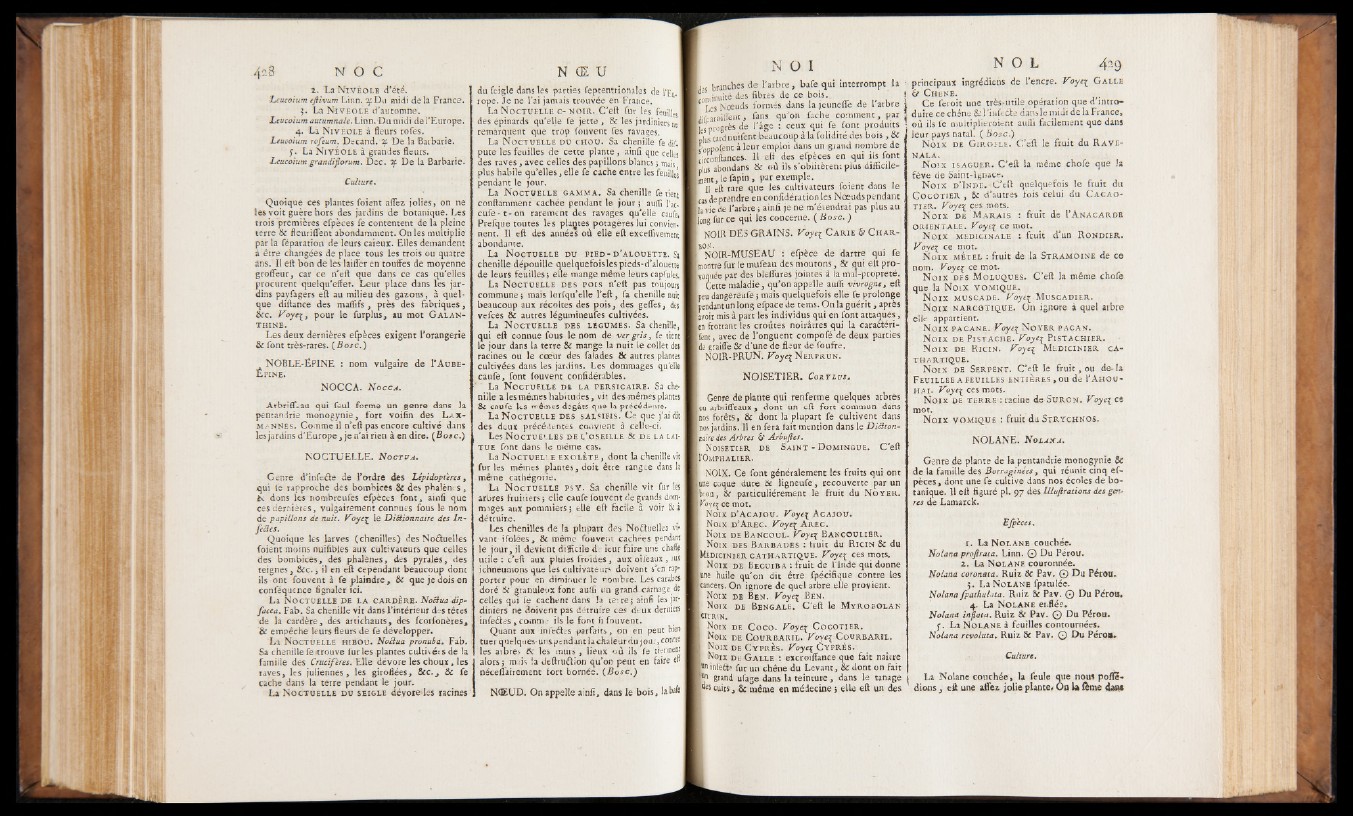 428 N O C
2. La NIVÉOLE d'été.
Leucoium estivum Linn. ♃ Du midi de la France.
3. La NIVÉOLE d'automne.
Leucoium autumnale. Linn. Du midi de l'Europe.
4. La NIVÉOLE à fleurs roses.
Leucoium roseum. Decand. ♃ De la Barbarie.
5. La NIVÉOLE à grandes fleurs.
Leucoium grandiflorum. Dec. ♃ De la Barbarie.
Culture.
Quoique ces plantes soient assez jolies, on ne
les voit guère hors des jardins de botanique. Les
trois premières espèces se contentent de la pleine
terre & fleurissent abondamment. On les multiplie
par la séparation de leurs caïeux. Elles demandent
à être changées de place tous les trois ou quatre
ans. Il est bon de les laisser en touffes de moyenne
grosseur, car ce n'est que dans ce cas qu'elles
procurent quelqu'effet. Leur place dans les jar-
dins paysagers est au milieu des gazons, à quel-
que distance des massifs, près des fabriques,
&c. Voyez, pour le surplus, au mot GALAN-
THINE.
Les deux dernières espèces exigent l'orangerie
& sont très-rares. (Bosc.)
NOBLE-ÉPINE : nom vulgaire de l'AUBE-
ÉPINE.
NOCCA. NOCCA.
Arbrisseau qui seul forme un genre dans la
pentandrie monogynie, fort voisin des LAX-
MANNES. Comme il n'est pas encore cultivé dans
les jardins d'Europe, je n'ai rien à en dire. (Bosc.)
NOCTUELLE. NOCTUA.
Genre d'insecte de l'ordre des Lépidoptères,
qui se rapproche des bombices & des phalènes,
& dont les nombreuses espèces sont, ainsi que
ces dernières, vulgairement connues sous le nom
de papillons de nuit. Voyez le Dictionnaire des In-
sectes.
Quoique les larves (chenilles) des Noctuelles
soient moins nuisibles aux cultivateurs que celles
des bombices, des phalènes, des pyrales, des
teignes, &c., il en est cependant beaucoup dont
ils ont souvent à se plaindre, & que je dois en
conséquence signaler ici.
La NOCTUELLE DE LA CARDÈRE. Noctua dip-
sacea. Fab. Sa chenille vit dans l'intérieur des têtes
de la cardère, des artichauts, des scorsonères,
& empêche leurs fleurs de se développer.
La NOCTUELLE HIBOU. Noctua pronuba. Fab.
Sa chenille se trouve sur les plantes cultivées de la
famille des Crucifères. Elle dévore les choux, les
raves, les juliennes, les giroflées, &c., & se
cache dans la terre pendant le jour.
La NOCTUELLE DU SEIGLE dévore les racines
N Œ U
du seigle dans les parties septentrionales de l'Eu-
rope. Je ne l'ai jamais trouvée en France.
La NOCTUELLE C-NOIR. C'est sur les feuilles
des épinards qu'elle se jette, & les jardiniers
remarquent que trop souvent ses ravages.
La NOCTUELLE DU CHOU. Sa chenille se dis-
pute les feuilles de cette plante, ainsi que celles
des raves, avec celles des papillons blancs; mais,
plus habile qu'elles, elle se cache entre les feuilles
pendant le jour.
La NOCTUELLE GAMMA. Sa chenille se tient
constamment cachée pendant le jour; aussi l'ac-
cuse-t-on rarement des ravages qu'elle cause.
Presque toutes les plantes potagères lui convien-
nent. Il est des années où elle est excessivement
abondante.
La NOCTUELLE DU PIED-D'ALOUETTE. Sa
chenille dépouille quelquefois les pieds-d'alouette
de leurs feuilles; elle mange même leurs capsules.
La NOCTUELLE DES POIS n'est pas toujours
commune; mais lorsqu'elle l'est, sa chenille nuit
beaucoup aux récoltes des pois, des gesses, des
vesces & autres légumineuses cultivées.
La NOCTUELLE DES LÉGUMES. Sa chenille,
qui est connue sous le nom de ver gris, se tient
le jour dans la terre & mange la nuit le collet des
racines ou le cœur des salades & autres plantes
cultivées dans les jardins. Les dommages qu'elle
cause, sont souvent considérables.
La NOCTUELLE DE LA PERSICAIRE. Sa che-
nille a les mêmes habitudes, vit des mêmes plantes
& cause les mêmes dégâts que la précédente.
La NOCTUELLE DES SALSIFIS. Ce que j'ai dit
des deux précédentes convient à celle-ci.
Les NOCTUELLES DE L'OSEILLE & DE LA LAI-
TUE sont dans le même cas.
La NOCTUELLE EXOLÈTE, dont la chenille vit
sur les mêmes plantes, doit être rangée dans la
même cathégorie.
La NOCTUELLE PSY. Sa chenille vit sur les
arbres fruitiers; elle cause souvent de grands dom-
mages aux pommiers; elle est facile à voir & à
détruire.
Les chenilles de la plupart des Noctuelles vi-
vant isolées, & même souvent cachées pendant
le jour, il devient difficile de leur faire une chasse
utile : c'est aux pluies froides, aux oiseaux, aux
ichneumons que les cultivateurs doivent s'en rap-
porter pour en diminuer le nombre. Les carabes
doré & granuleux font aussi un grand carnage de
celles qui se cachent dans la terre; ainsi les jar-
diniers ne doivent pas détruire ces deux derniers
insectes, comme ils le font si souvent.
Quant aux insectes parfaits, on en peut bien
tuer quelques-uns pendant la chaleur du jour, contre
les arbres & les murs, lieux où ils se tiennent
alors; mais la destruction qu'on peut en faire est
nécessairement fort bornée. (Bosc.)
NŒUD. On appelle ainsi, dans le bois, la base
N O I
des branches de l'arbre, base qui interrompt la
continuité des fibres de ce bois.
Les Nœuds formés dans la jeunesse de l'arbre
disparoissent, sans qu'on sache comment, par
les progrès de l'âge : ceux qui se sont produits
plus tard nuisent beaucoup à la solidité des bois, &
s'opposent à leur emploi dans un grand nombre de
circonstances. Il est des espèces en qui ils sont
plus abondans & où ils s'oblitèrent plus difficile-
ment, le sapin, par exemple.
Il est rare que les cultivateurs soient dans le
cas de prendre en considération les Nœuds pendant
la vie de l'arbre; ainsi je ne m'étendrai pas plus au
long sur ce qui les concerne. (Bosc.)
NOIR DES GRAINS. Voyez CARIE & CHAR-
BON.
NOIR-MUSEAU : espèce de dartre qui se
montre sur le museau des moutons, & qui est pro-
voquée par des blessures jointes à la mal-propreté.
Cette maladie, qu'on appelle aussi vivrogne, est
peu dangereuse; mais quelquefois elle se prolonge
pendant un long espace de tems. On la guérit, après
avoir mis à part les individus qui en sont attaqués,
en frottant les croûtes noirâtres qui la caractéri-
sent, avec de l'onguent composé de deux parties
de graisse & d'une de fleur de soufre.
NOIR-PRUN. Voyez NERPRUN.
NOISETIER. CORYLUS.
Genre de plante qui renferme quelques arbres
ou arbrisseaux, dont un est fort commun dans
nos forêts, & dont la plupart se cultivent dans
nos jardins. Il en sera fait mention dans le Diction-
naire des Arbres & Arbustes.
NOISETIER DE SAINT-DOMINGUE. C'est
l'OMPHALIER.
NOIX. Ce sont généralement les fruits qui ont
une coque dure & ligneuse, recouverte par un
brou, & particuliérement le fruit du NOYER.
Voyez ce mot.
NOIX D'ACAJOU. Voyez ACAJOU.
NOIX D'AREC. Voyez AREC.
NOIX DE BANCOUL. Voyez BANCOULIER.
NOIX DES BARBADES : fruit du RICIN & du
MÉDICINIER CATHARTIQUE. Voyez ces mots.
NOIX DE BEGUIBA : fruit de l'Inde qui donne
une huile qu'on dit être spécifique contre les
cancers. On ignore de quel arbre elle provient.
NOIX DE BEN. Voyez BEN.
NOIX DE BENGALE. C'est le MYROBOLAN
CITRIN.
NOIX DE COCO. Voyez COCOTIER.
NOIX DE COURBARIL. Voyez COURBARIL.
NOIX DE CYPRÈS. Voyez CYPRÈS.
NOIX DE GALLE : excroissance que fait naître
un insecte sur un chêne du Levant, & dont on fait
un grand usage dans la teinture, dans le tanage
des cuirs, & même en médecine; elle est un des
N O L 429
principaux ingrédiens de l'encre. Voyez GALLE
& CHÊNE.
Ce seroit une très-utile opération que d'intro-
duire ce chêne & l'insecte dans le midi de la France,
où ils se multiplieroient aussi facilement que dans
leur pays natal. (Bosc.)
NOIX DE GIROFLE. C'est le fruit du RAVE-
NALA.
NOIX ISAGUER. C'est la même chose que la
fève de Saint-Ignace.
NOIX D'INDE. C'est quelquefois le fruit du
COCOTIER, & d'autres fois celui du CACAO-
TIER. Voyez ces mots.
NOIX DE MARAIS : fruit de l'ANACARDE
ORIENTALE. Voyez ce mot.
NOIX MÉDICINALE : fruit d'un RONDIER.
Voyez ce mot.
NOIX MÉTEL : fruit de la STRAMOINE de ce
nom. Voyez ce mot.
NOIX DES MOLUQUES. C'est la même chose
que la NOIX VOMIQUE.
NOIX MUSCADE. Voyez MUSCADIER.
NOIX NARCOTIQUE. On ignore à quel arbre
elle appartient.
NOIX PACANE. Voyez NOYER PACAN.
NOIX DE PISTACHE. Voyez PISTACHIER.
NOIX DE RICIN. Voyez MÉDICINIER CA-
THARTIQUE.
NOIX DE SERPENT. C'est le fruit, ou de la
FEUILLÉE A FEUILLES ENTIÈRES, ou de l'AHOU-
HAI. Voyez ces mots.
NOIX DE TERRE : racine de SURON. Voyez ce
mot.
NOIX VOMIQUE : fruit du STRYCHNOS.
NOLANE. NOLANA.
Genre de plante de la pentandrie monogynie &
de la famille des Borraginées, qui réunit cinq es-
pèces, dont une se cultive dans nos écoles de bo-
tanique. Il est figuré pl. 97 des Illustrations des gen-
res de Lamarck.
Espèces.
1. La NOLANE couchée.
Nolana prostrata. Linn. ☉ Du Pérou.
2. La NOLANE couronnée.
Nolana coronata. Ruiz & Pav. ☉ Du Pérou.
3. La NOLANE spatulée.
Nolana spathulata. Ruiz & Pav. ☉ Du Pérou.
4. La NOLANE enflée.
Nolana inflata. Ruiz & Pav. ☉ Du Pérou.
5. La NOLANE à feuilles contournées.
Nolana revoluta. Ruiz & Pav. ☉ Du Pérou.
Culture.
La Nolane couchée, la seule que nous possé-
dions, est une assez jolie plante. On la sème dans